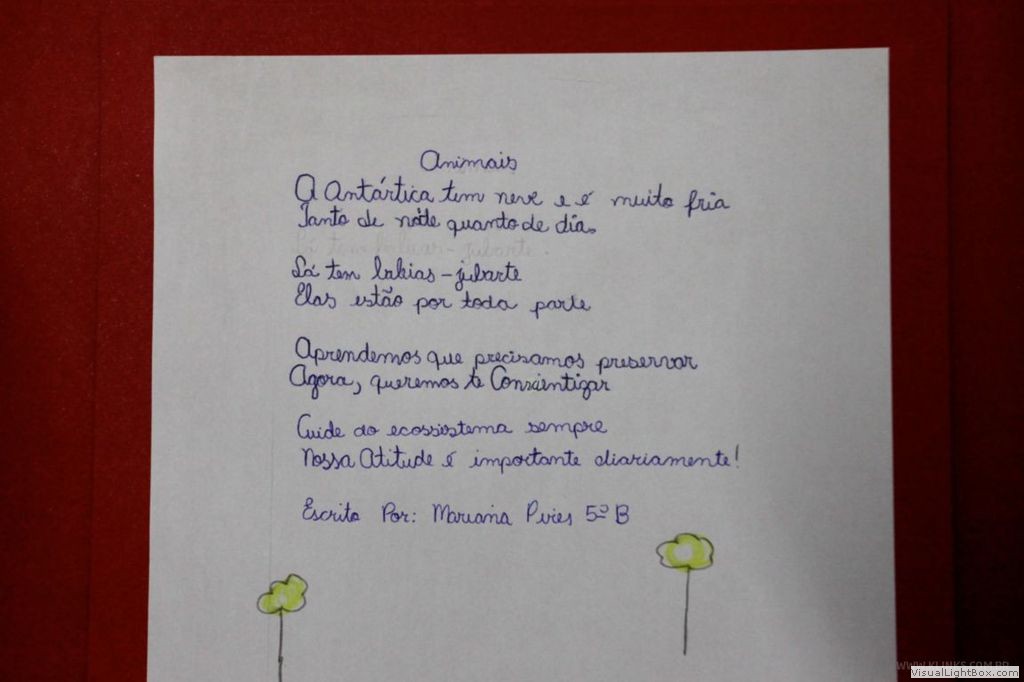 Animais
A Antártica tem neve e é muito fria
Tanto de noite quanto de dia.
Lá tem baleias-jubarte
Elas estão por toda parte
Aprendemos que precisamos preservar
Agora, queremos te Conscientizar
Cuide do ecossistema sempre
Nossa Atitude é importante diariamente!
Escrito Por: Mariana Pires 5º B
WWW.KLINKS.COM.BR
VisualLightBox.com